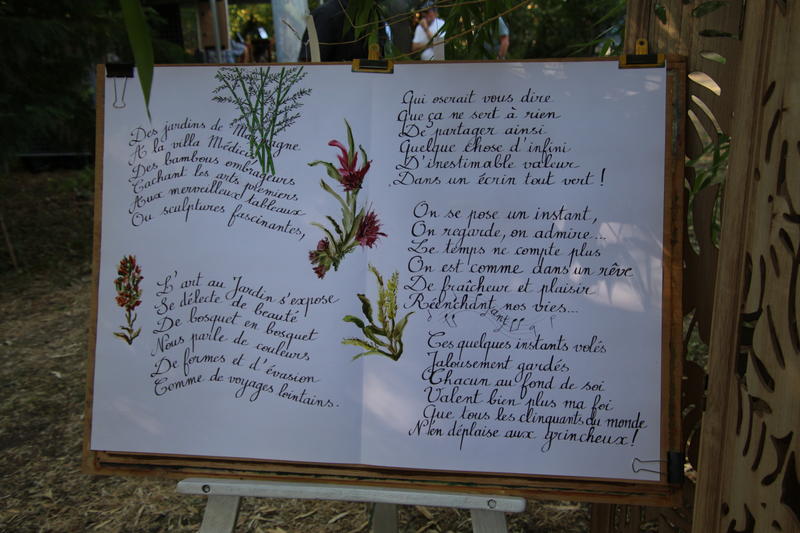 Des jardins de Mallagne
A la villa Médicis
Des bambous ombrageurs
Cachant les arts premiers
Aux merveilleux tableaux
Ou sculptures fascinantes,
L'art au Jardin s'expose
Se délecte de beauté
De bosquet en bosquet
Nous parle de couleurs
De formes et d'évasion
Comme de voyages lointains.
Qui oserait vous dire
Que ça ne sert à rien
De partager ainsi
Quelque chose d'infini
D'inestimable valeur
Dans un écrin tout vert !
On se pose un instant,
On regarde, on admire...
Le temps ne compte plus
On est comme dans un rêve
De fraîcheur et plaisir
Réenchant nos vies...
ant
Ces quelques instants volés
Jalousement gardés
Chacun au fond de soi
Valent bien plus ma foi
Que tous les clinquants du monde
N'en déplaise aux grincheux !